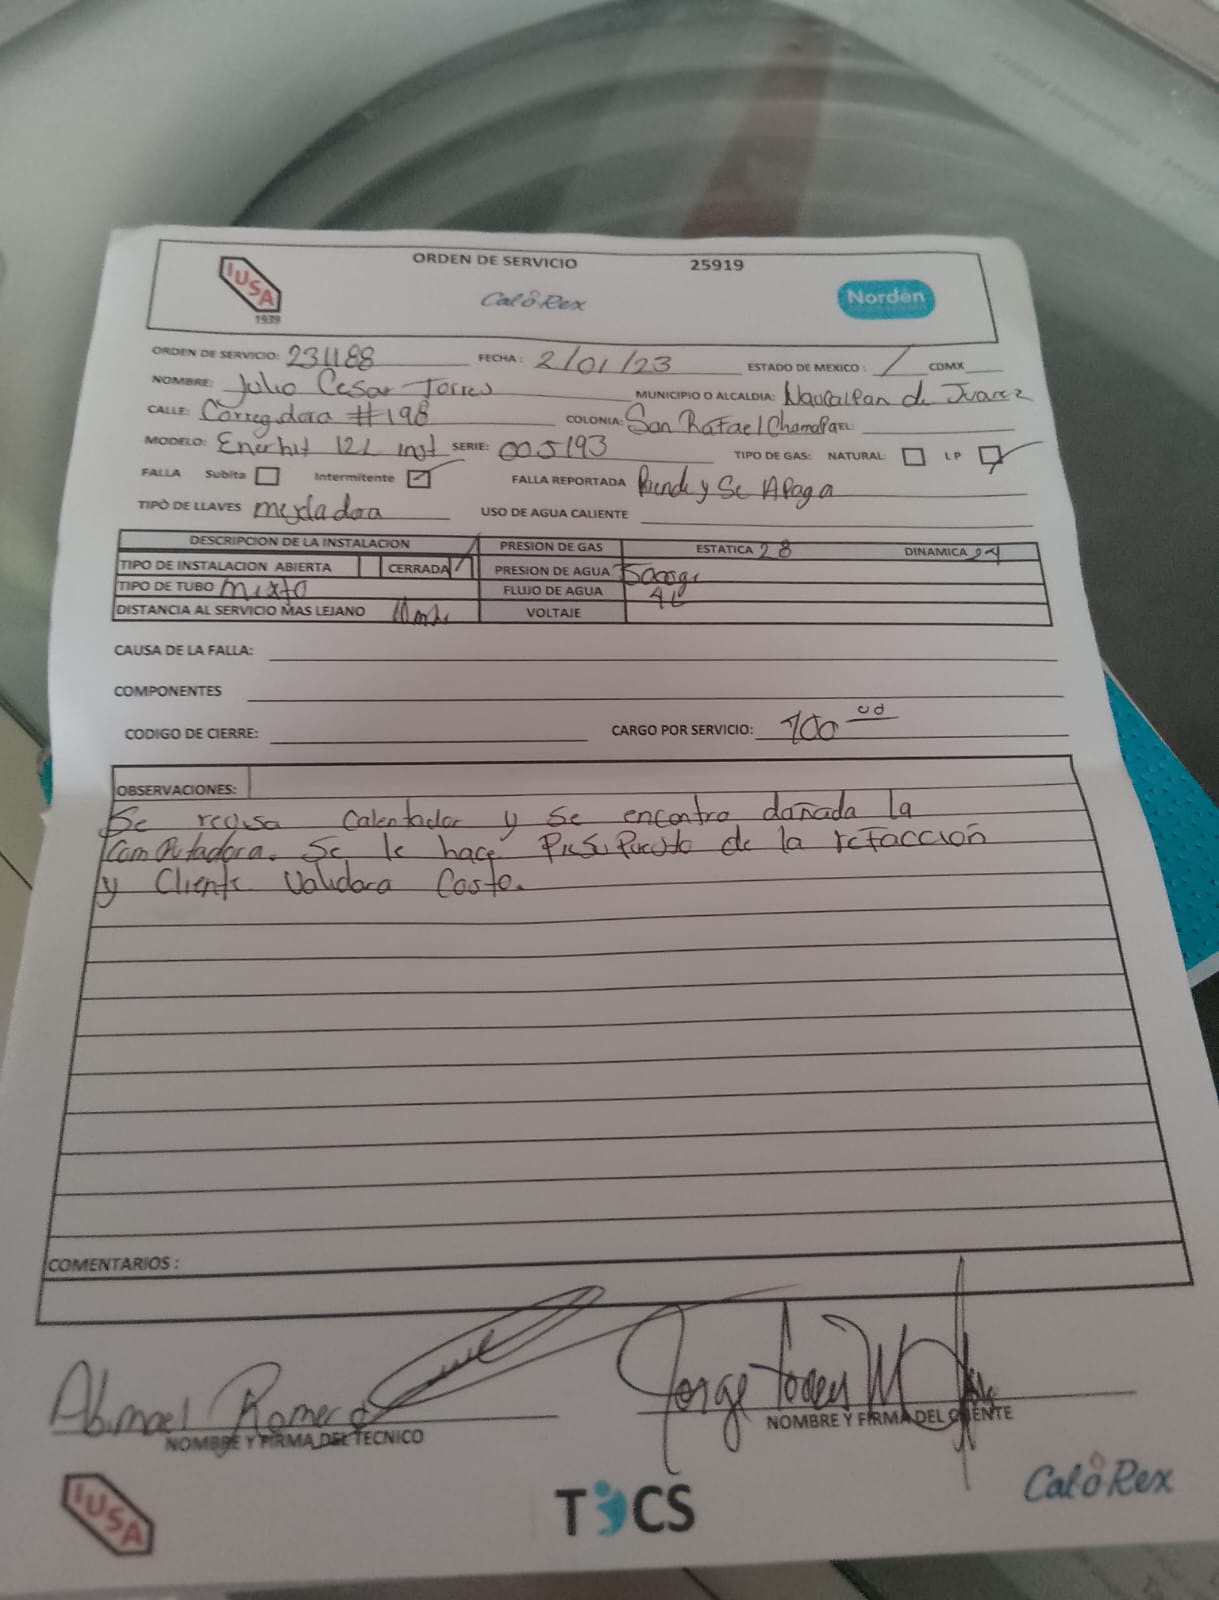 ORDEN DE SERVICIO 25919
IUSA 1939 CaloRex Nordën
ORDEN DE SERVICIO: 231188 FECHA: 2/01/23 ESTADO DE MEXICO: / CDMX
NOMBRE: Julio Cesar Torres MUNICIPIO O ALCALDIA: Naucalpan de Juarez
CALLE: Corregidora #198 COLONIA: San Rafael Chamapa EL:
MODELO: Enerhit 12L inst SERIE: 005193 TIPO DE GAS: NATURAL LP
FALLA Subita Intermitente FALLA REPORTADA Prende y Se Apaga
TIPO DE LLAVES mezcladora USO DE AGUA CALIENTE
DESCRIPCION DE LA INSTALACION PRESION DE GAS ESTATICA 28 DINAMICA 24
TIPO DE INSTALACION ABIERTA CERRADA PRESION DE AGUA 500gr
TIPO DE TUBO mixto FLUJO DE AGUA 4L
DISTANCIA AL SERVICIO MAS LEJANO 10mts VOLTAJE
CAUSA DE LA FALLA:
COMPONENTES
CODIGO DE CIERRE: CARGO POR SERVICIO: 700
OBSERVACIONES:
Se revisa Calentador y Se encontro dañada la
Computadora. Se le hace Presupuesto de la refacción
y Cliente Validara Costo.
COMENTARIOS:
Abimael Romero Jorge Torres M
NOMBRE Y FIRMA DEL TECNICO NOMBRE Y FIRMA DEL CLIENTE
IUSA TICS CaloRex